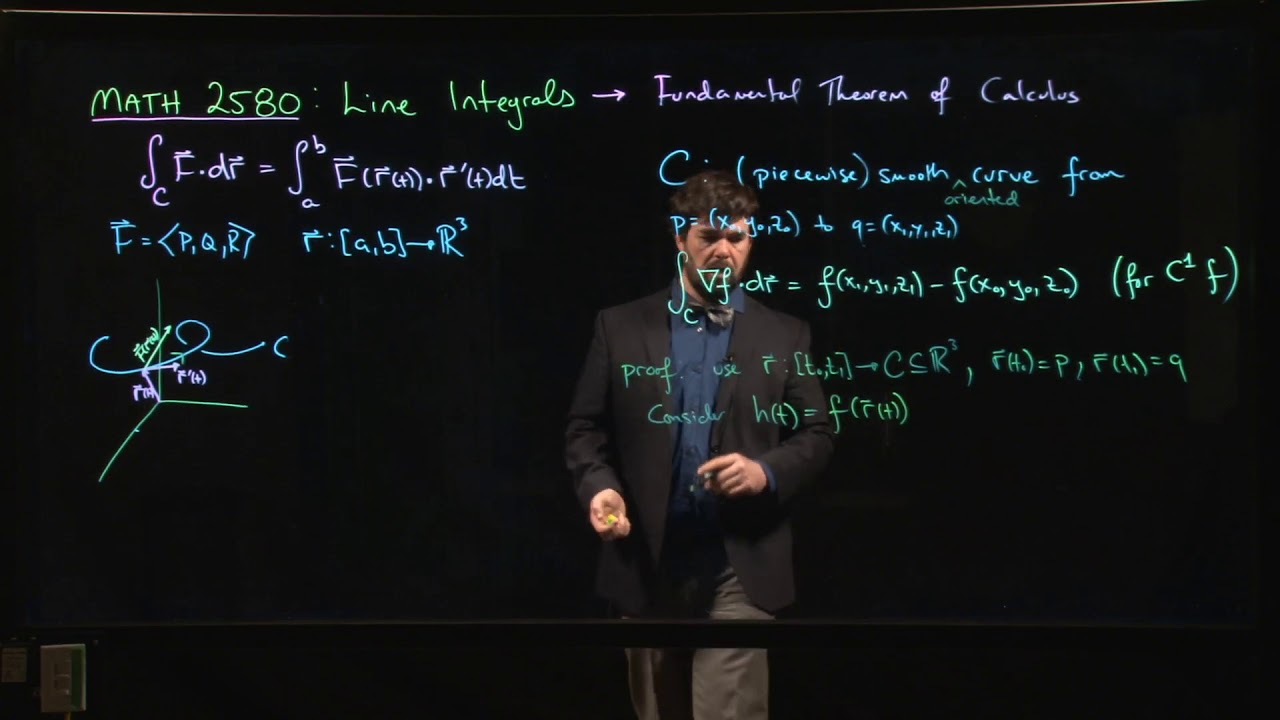 MATH 2580: Line Integrals → Fundamental Theorem of Calculus
∫_C F⃗·dr⃗ = ∫_a^b F⃗(r⃗(t))·r⃗'(t)dt
F⃗ = ⟨P,Q,R⟩ r⃗:[a,b]→ℝ³
C
F⃗(r⃗(t))
r⃗'(t)
r⃗(t)
C: (piecewise) smooth ^ curve from
oriented
p=(x₀,y₀,z₀) to q=(x₁,y₁,z₁)
∫_C ∇f·dr⃗ = f(x₁,y₁,z₁) − f(x₀,y₀,z₀) (for C¹ f)
proof: use r⃗:[t₀,t₁]→C⊆ℝ³, r⃗(t₀)=p, r⃗(t₁)=q
Consider h(t) = f(r⃗(t))